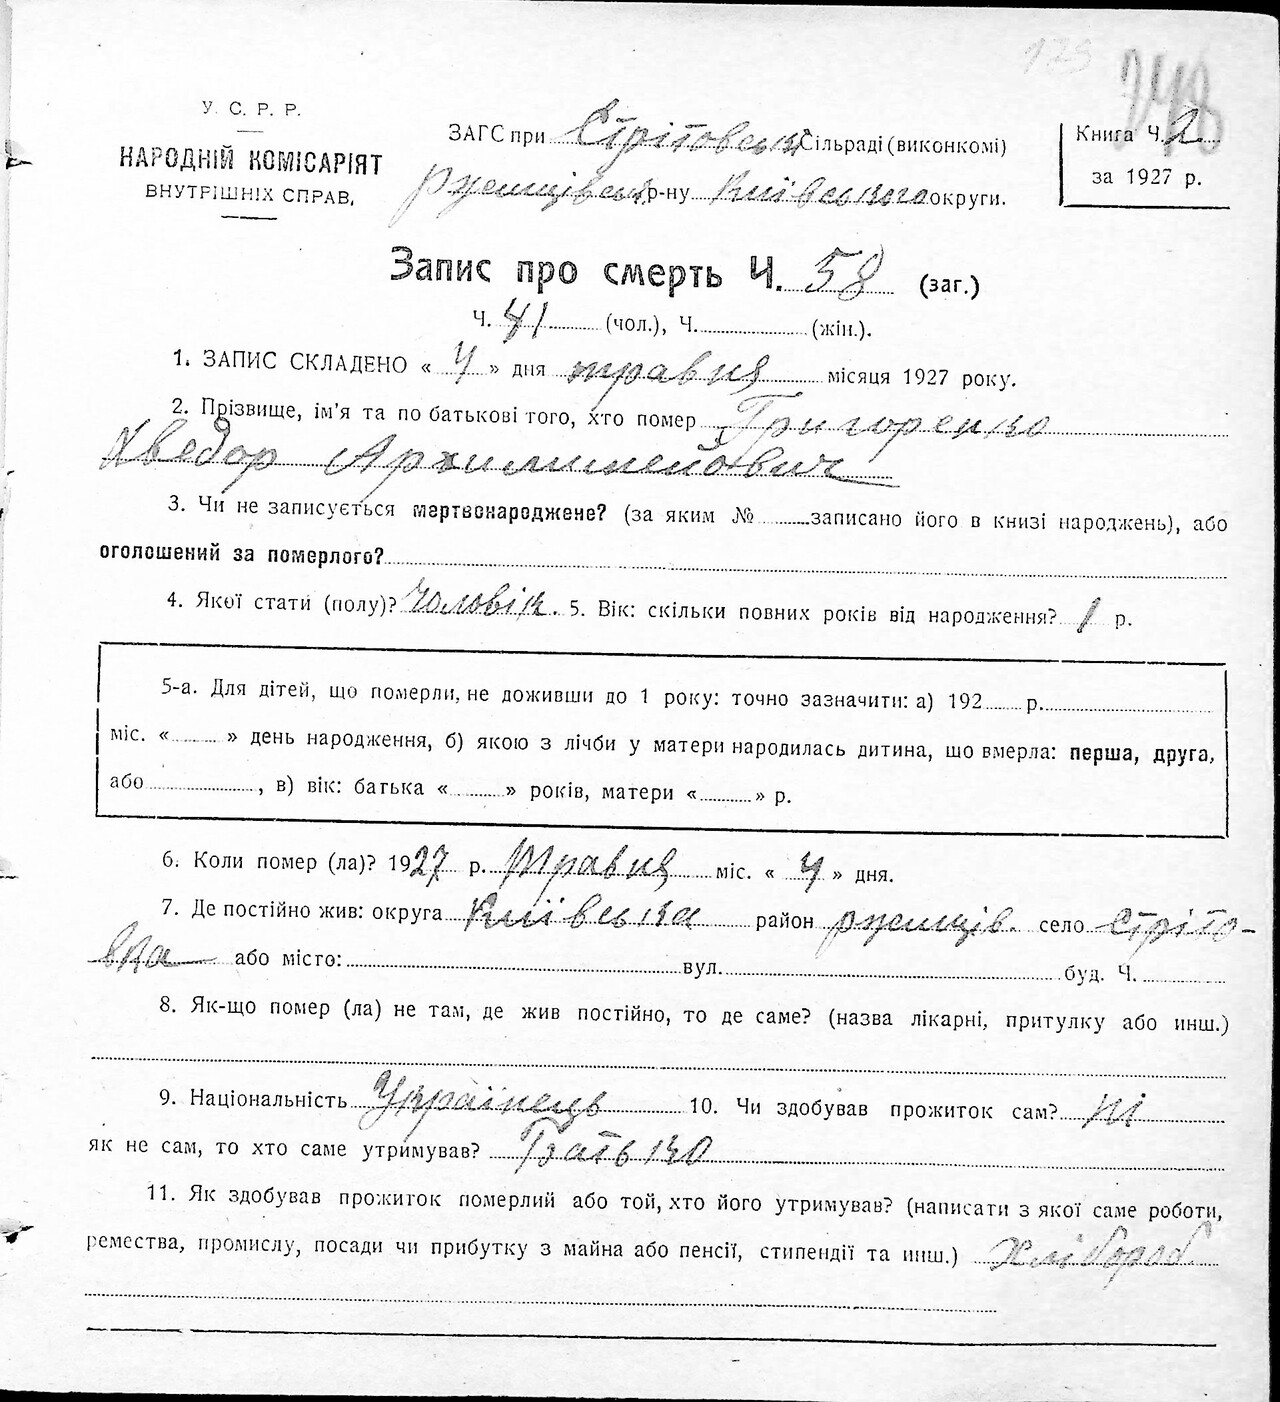 125
248
У. С. Р. Р.
НАРОДНІЙ КОМІСАРІЯТ
ВНУТРІШНІХ СПРАВ,
ЗАГС при Стрітовськ Сільраді (виконкомі)
Ржищівськ. р-ну Київського округи.
Книга Ч. 2
за 1927 р.
Запис про смерть Ч. 58 (заг.)
Ч. 41 (чол.), Ч. (жін.).
1. ЗАПИС СКЛАДЕНО « 4 » дня травня місяця 1927 року.
2. Прізвище, ім'я та по батькові того, хто помер Григоренко
Хведор
3. Чи не записується мертвонароджене? (за яким № записано його в книзі народжень), або
оголошений за померлого?
4. Якої стати (полу)? Чоловік. 5. Вік: скільки повних років від народження? 1 р.
5-а. Для дітей, що померли, не доживши до 1 року: точно зазначити: а) 192 р.
міс. « » день народження, б) якою з лічби у матери народилась дитина, що вмерла: перша, друга,
або , в) вік: батька « » років, матери « » р.
6. Коли помер (ла)? 1927 р. Травня міс. « 4 » дня.
7. Де постійно жив: округа Київська район Ржищів. село Стріто-
вка або місто: вул. буд. Ч.
8. Як-що помер (ла) не там, де жив постійно, то де саме? (назва лікарні, притулку або инш.)
9. Національність Українець 10. Чи здобував прожиток сам? ні
як не сам, то хто саме утримував? Батько
11. Як здобував прожиток померлий або той, хто його утримував? (написати з якої саме роботи,
ремества, промислу, посади чи прибутку з майна або пенсії, стипендії та инш.) Хлібороб